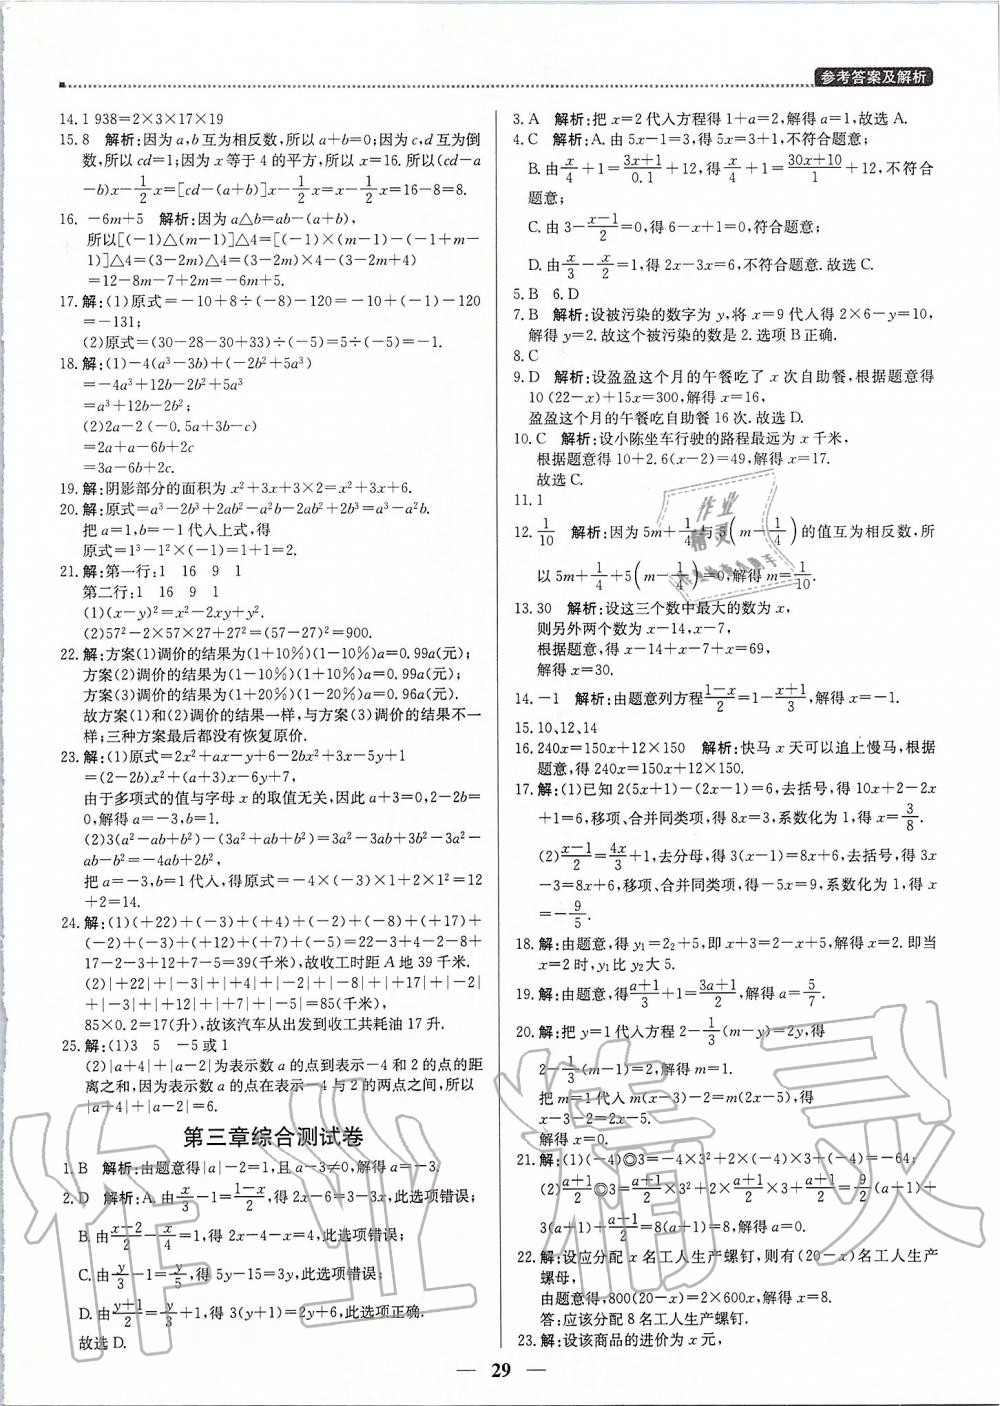 参考答案及解析
14. 1 938=2×3×17×19
15. 8　解析:因为a,b互为相反数,所以a+b=0;因为c,d互为倒
数,所以cd=1;因为x等于4的平方,所以x=16.所以(cd-a
-b)x-1/2x=[cd-(a+b)]x-1/2x=x-1/2x=16-8=8.
16. -6m+5　解析:因为a△b=ab-(a+b),
所以[(-1)△(m-1)]△4=[(-1)×(m-1)-(-1+m-
1)]△4=(3-2m)△4=(3-2m)×4-(3-2m+4)
=12-8m-7+2m=-6m+5.
17. 解:(1)原式=-10+8÷(-8)-120=-10+(-1)-120
=-131;
(2)原式=(30-28-30+33)÷(-5)=5÷(-5)=-1.
18. 解:(1)-4(a³-3b)+(-2b²+5a³)
=-4a³+12b-2b²+5a³
=a³+12b-2b²;
(2)2a-2(-0.5a+3b-c)
=2a+a-6b+2c
=3a-6b+2c.
19. 解:阴影部分的面积为x²+3x+3×2=x²+3x+6.
20. 解:原式=a³-2b³+2ab²-a²b-2ab²+2b³=a³-a²b.
把a=1,b=-1代入上式,得
原式=1³-1²×(-1)=1+1=2.
21. 解:第一行:1　16　9　1
第二行:1　16　9　1
(1)(x-y)²=x²-2xy+y².
(2)57²-2×57×27+27²=(57-27)²=900.
22. 解:方案(1)调价的结果为(1+10%)(1-10%)a=0.99a(元);
方案(2)调价的结果为(1-10%)(1+10%)a=0.99a(元);
方案(3)调价的结果为(1+20%)(1-20%)a=0.96a(元).
故方案(1)和(2)调价的结果一样,与方案(3)调价的结果不一
样;三种方案最后都没有恢复原价.
23. 解:(1)原式=2x²+ax-y+6-2bx²+3x-5y+1
=(2-2b)x²+(a+3)x-6y+7,
由于多项式的值与字母x的取值无关,因此a+3=0,2-2b=
0,解得a=-3,b=1.
(2)3(a²-ab+b²)-(3a²+ab+b²)=3a²-3ab+3b²-3a²-
ab-b²=-4ab+2b²,
把a=-3,b=1代入,得原式=-4×(-3)×1+2×1²=12
+2=14.
24. 解:(1)(+22)+(-3)+(+4)+(-2)+(-8)+(+17)+
(-2)+(-3)+(+12)+(+7)+(-5)=22-3+4-2-8+
17-2-3+12+7-5=39(千米),故收工时距A地39千米.
(2)|+22|+|-3|+|+4|+|-2|+|-8|+|+17|+|-2|
+|-3|+|+12|+|+7|+|-5|=85(千米),
85×0.2=17(升),故该汽车从出发到收工共耗油17升.
25. 解:(1)3　5　-5或1
(2)|a+4|+|a-2|为表示数a的点到表示-4和2的点的距
离之和,因为表示数a的点在表示-4与2的两点之间,所以
|a+4|+|a-2|=6.
第三章综合测试卷
1. B　解析:由题意得|a|-2=1,且a-3≠0,解得a=-3.
2. D　解析:A.由x/3-1=(1-x)/2,得2x-6=3-3x,此选项错误;
B.由(x-2)/2-x/4=1,得2x-4-x=4,此选项错误;
C.由y/3-1=y/5,得5y-15=3y,此选项错误;
D.由(y+1)/2=y/3+1,得3(y+1)=2y+6,此选项正确.
故选D.
3. A　解析:把x=2代入方程得1+a=2,解得a=1,故选A.
4. C　解析:A.由5x-1=3,得5x=3+1,不符合题意;
B.由x/4+1=(3x+1)/0.1+12,得x/4+1=(30x+10)/1+12,不符合
题意;
C.由3-(x-1)/2=0,得6-x+1=0,符合题意;
D.由x/3-x/2=1,得2x-3x=6,不符合题意.故选C.
5. B　6. D
7. B　解析:设被污染的数字为y,将x=9代入得2×6-y=10,
解得y=2.故这个被污染的数是2.选项B正确.
8. C
9. D　解析:设盈盈这个月的午餐吃了x次自助餐,根据题意得
10(22-x)+15x=300,解得x=16,
盈盈这个月的午餐吃自助餐16次.故选D.
10. C　解析:设小陈坐车行驶的路程最远为x千米,
根据题意得10+2.6(x-2)=49,解得x=17.
故选C.
11. 1
12. 1/10　解析:因为5m+1/4与5(m-1/4)的值互为相反数,所
以5m+1/4+5(m-1/4)=0,解得m=1/10.
13. 30　解析:设这三个数中最大的数为x,
则另外两个数为x-14,x-7,
根据题意,得x-14+x-7+x=69,
解得x=30.
14. -1　解析:由题意列方程(1-x)/2=1-(x+1)/3,解得x=-1.
15. 10、12、14
16. 240x=150x+12×150　解析:快马x天可以追上慢马,根据
题意,得240x=150x+12×150.
17. 解:(1)已知2(5x+1)-(2x-1)=6,去括号,得10x+2-2x
+1=6,移项、合并同类项,得8x=3,系数化为1,得x=3/8.
(2)(x-1)/2=4x/3+1,去分母,得3(x-1)=8x+6,去括号,得3x
-3=8x+6,移项、合并同类项,得-5x=9,系数化为1,得x
=-9/5.
18. 解:由题意,得y₁=2₂+5,即x+3=2-x+5,解得x=2.即当
x=2时,y₁比y₂大5.
19. 解:由题意,得(a+1)/3+1=(3a+1)/2,解得a=5/7.
20. 解:把y=1代入方程2-1/3(m-y)=2y,得
2-1/3(m-1)=2,解得m=1.
把m=1代入m(x-3)-2=m(2x-5),得
x-3-2=2x-5.
解得x=0.
21. 解:(1)(-4)◎3=-4×3²+2×(-4)×3+(-4)=-64;
(2)(a+1)/2◎3=(a+1)/2×3²+2×(a+1)/2×3+(a+1)/2=9/2(a+1)+
3(a+1)+(a+1)/2=8(a+1)=8,解得a=0.
22. 解:设应分配x名工人生产螺钉,则有(20-x)名工人生产
螺母,
由题意得,800(20-x)=2×600x,解得x=8.
答:应该分配8名工人生产螺钉.
23. 解:设该商品的进价为x元,
29
作业精灵